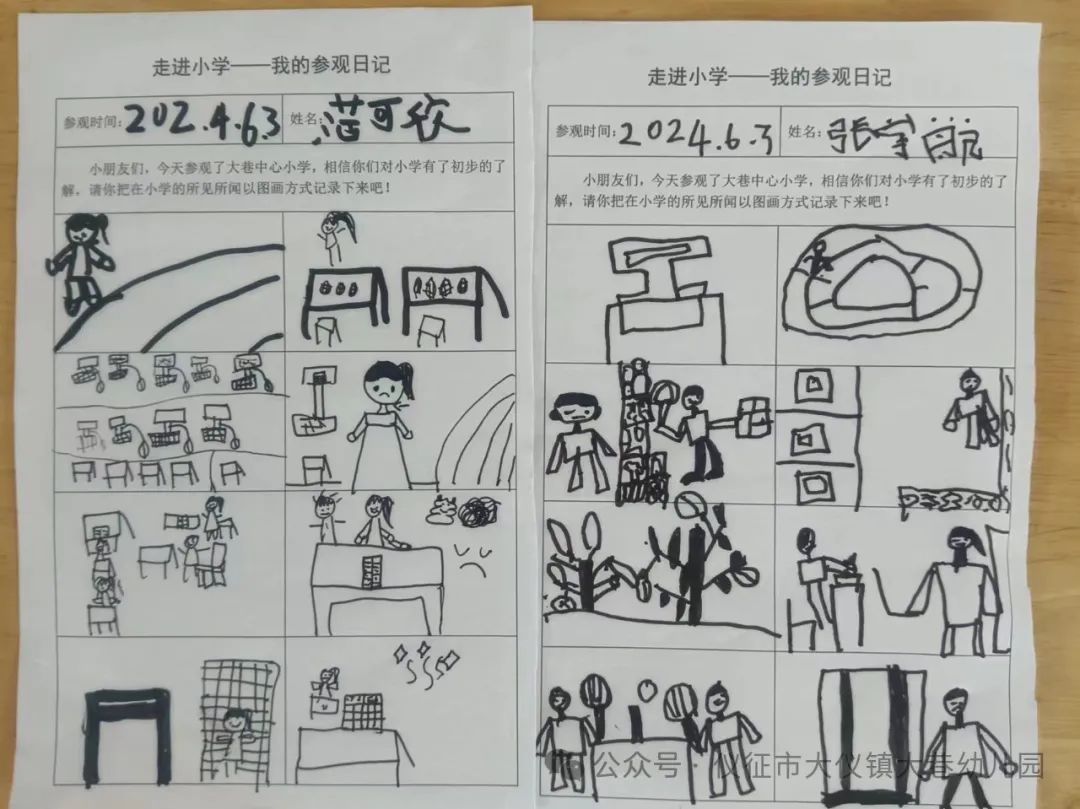 走进小学——我的参观日记
参观时间:202.4.6.3 姓名:范可欣
小朋友们，今天参观了大巷中心小学，相信你们对小学有了初步的了
解，请你把在小学的所见所闻以图画方式记录下来吧！
走进小学——我的参观日记
参观时间:2024.6.3 姓名:张宇航
小朋友们，今天参观了大巷中心小学，相信你们对小学有了初步的了
解，请你把在小学的所见所闻以图画方式记录下来吧！
公众号·仪征市大仪镇大巷幼儿园